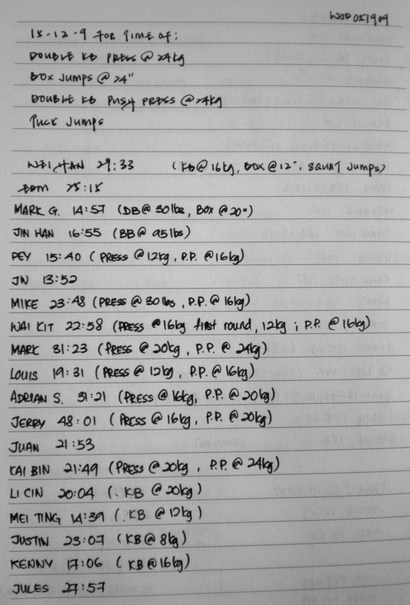 WOD 051909
15-12-9 FOR TIME OF:
DOUBLE KB PRESS @ 24kg
BOX JUMPS @ 24"
DOUBLE KB PUSH PRESS @ 24kg
TUCK JUMPS
29:33 (KB@16kg, BOX@12", SQUAT JUMPS)
25:15
MARK G. 14:57 (DB@50lbs, BOX@20")
JIN HAN 16:55 (BB@95lbs)
PEY 15:40 (PRESS @12kg, P.P. @16kg)
JN 13:52
MIKE 23:48 (PRESS @ 30lbs, P.P. @ 16kg)
WAI KIT 22:58 (PRESS @16kg first round, 12kg ; P.P. @ 16kg)
MARK 31:23 (PRESS @ 20kg, P.P. @ 24kg)
LOUIS 19:31 (PRESS @ 12kg, P.P. @ 16kg)
ADRIAN S. 31:21 (PRESS @ 16kg, P.P. @ 20kg)
JERRY 48:01 (PRESS @ 16kg, P.P. @ 20kg)
JUAN 21:53
KAI BIN 21:49 (PRESS @ 20kg, P.P. @ 24kg)
LI CIN 20:04 (. KB @ 20kg)
MEI TING 14:39 (. KB @ 12kg)
JUSTIN 23:07 (KB @ 8kg)
KENNY 17:06 (KB @ 16kg)
JULES 27:57